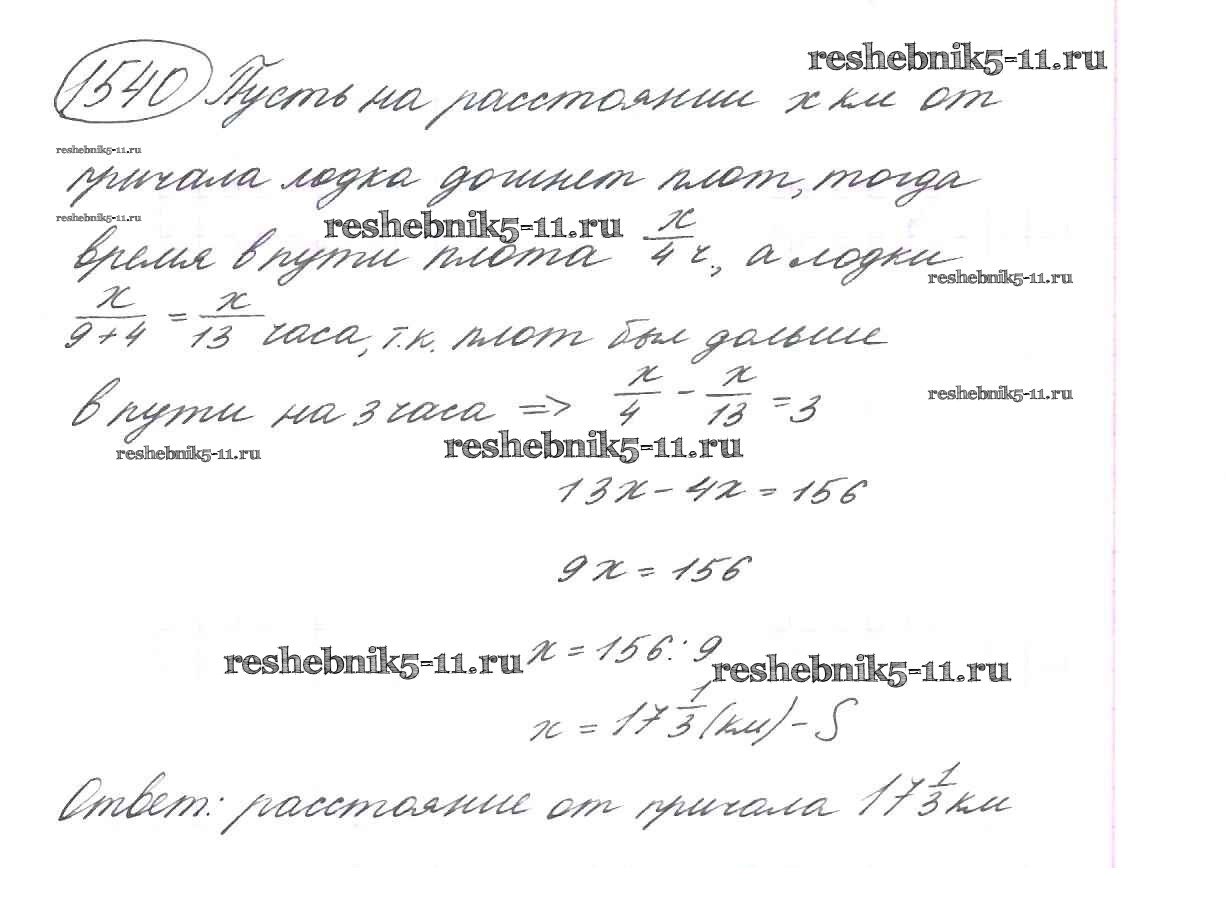 reshebnik5-11.ru
1540 Пусть на расстоянии x км от
reshebnik5-11.ru
причала лодка догонет плот, тогда
reshebnik5-11.ru
reshebnik5-11.ru
время в пути плота x/4 ч, а лодки
reshebnik5-11.ru
x/9+4 = x/13 часа, т.к. плот был дольше
в пути на 3 часа => x/4 - x/13 = 3
reshebnik5-11.ru
reshebnik5-11.ru
reshebnik5-11.ru
13x - 4x = 156
9x = 156
x = 156 : 9
reshebnik5-11.ru
reshebnik5-11.ru
x = 17 1/3 (км) - S
Ответ: расстояние от причала 17 1/3 км